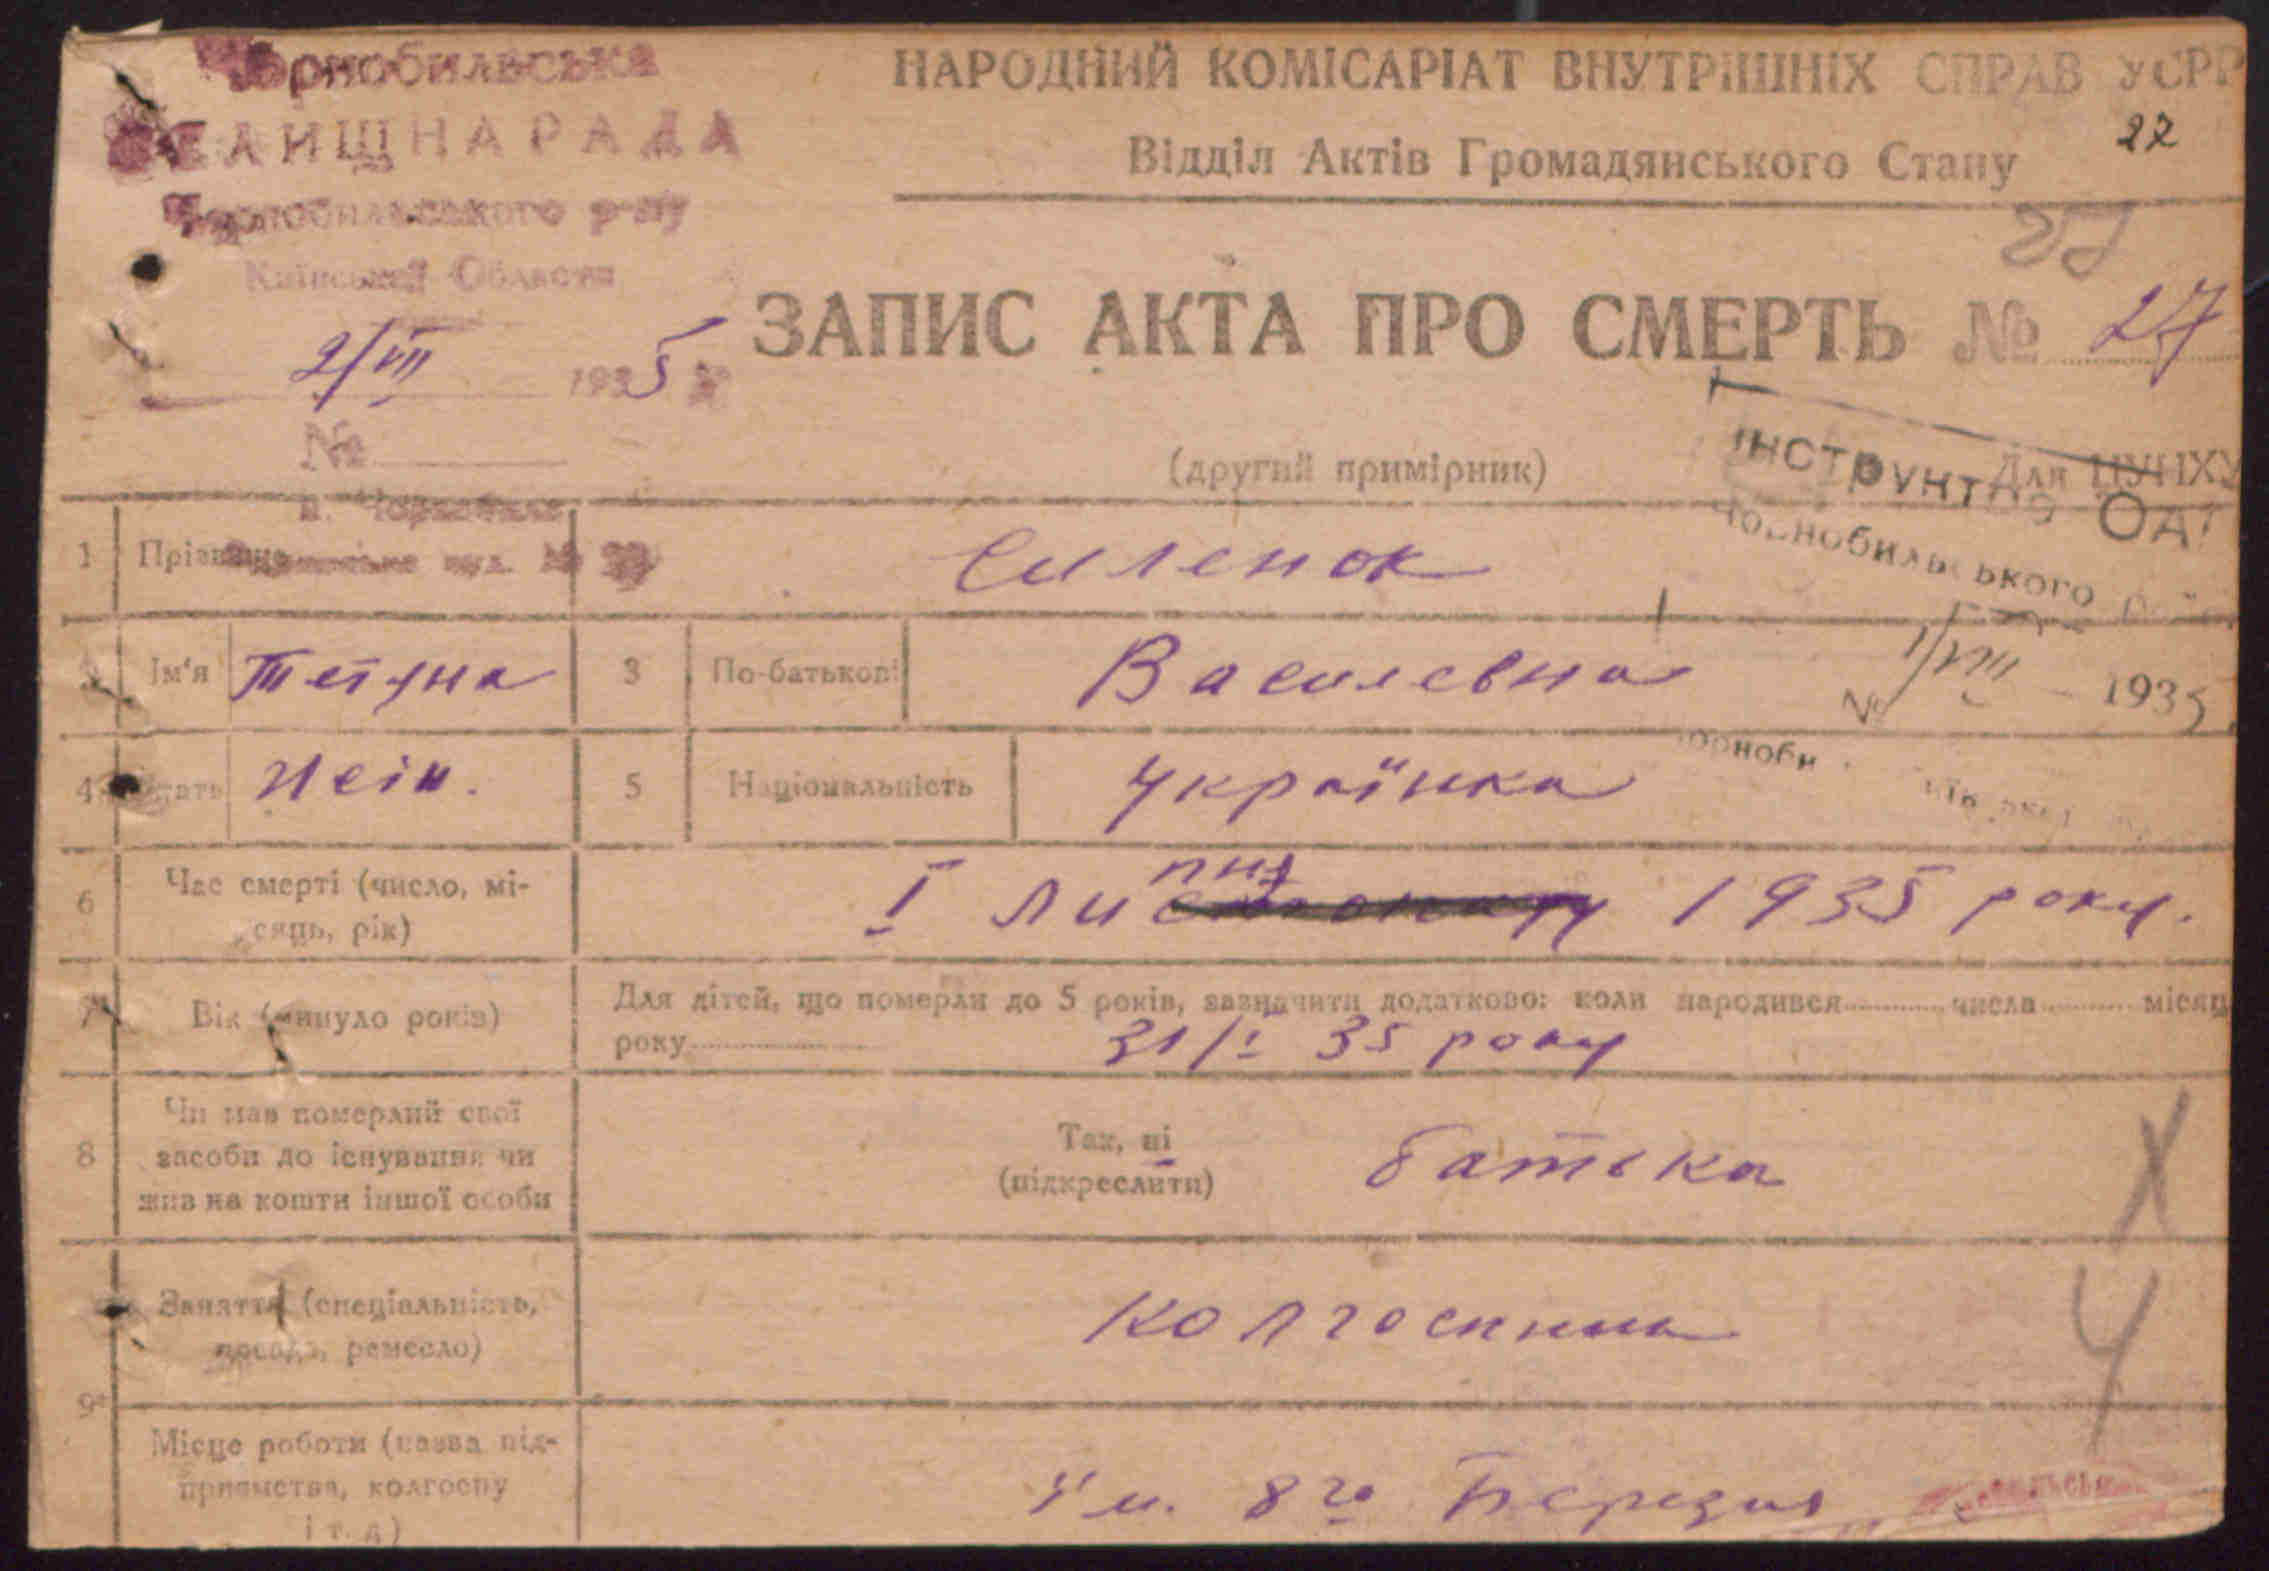 Чорнобильська
СЕЛИЩНА РАДА
Чорнобильського р-ну
Київської Области
2/VIII 1935 р
№
м. Чорнобиль
НАРОДНИЙ КОМІСАРІАТ ВНУТРІШНІХ СПРАВ УСРР
Відділ Актів Громадянського Стану
27
27
ЗАПИС АКТА ПРО СМЕРТЬ № 27
(другий примірник)
Для ЦУНХУ
ІНСТРУНТ
Чорнобильського
1/VIII 1935
№
1 Прізвище Силенок
2 Ім'я Тетяна 3 По-батькові Василевна
4 Стать жін. 5 Національність Українка
6 Час смерті (число, мі-
сяць, рік) I Липня 1935 року.
7 Вік (минуло років) Для дітей, що померли до 5 років, зазначити додатково: коли народився числа місяц
року 31/I 35 року
8 Чи мав померлий свої
засоби до існування чи
жив на кошти іншої особи
Так, ні
(підкреслити) батька
Заняття (спеціальність,
посада, ремесло) колгоспник
9
Місце роботи (назва під-
приємства, колгоспу
і т. д) Ім. 8го Березня